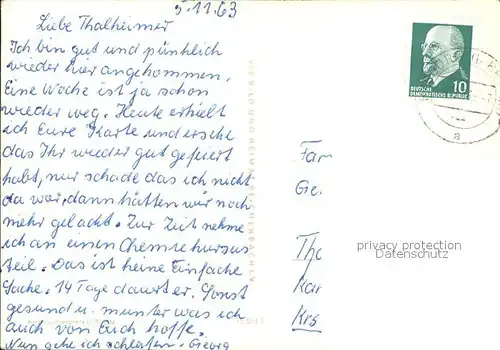 5.11.63
Liebe Thalheimer
Ich bin gut und pünklich
wieder hier angekommen.
Eine Woche ist ja schon
wieder weg. Heute erhielt
ich Eure Karte und ersehe
das Ihr wieder gut gefeiert
habt, nur schade das ich nicht
da war, dann hätten wir noch
mehr gelacht. Zur Zeit nehme
ich an einen Chemiekursus
teil. Das ist keine Einfache
Sache. 14 Tage dauert er. Sonst
gesund u. munter was ich
auch von Euch hoffe.
Nun gehe ich schlafen. Georg
10
DEUTSCHE
DEMOKRATISCHE REPUBLIK
a
Fam
Ge.
Tho
Kar
Krs
privacy protection
Datenschutz